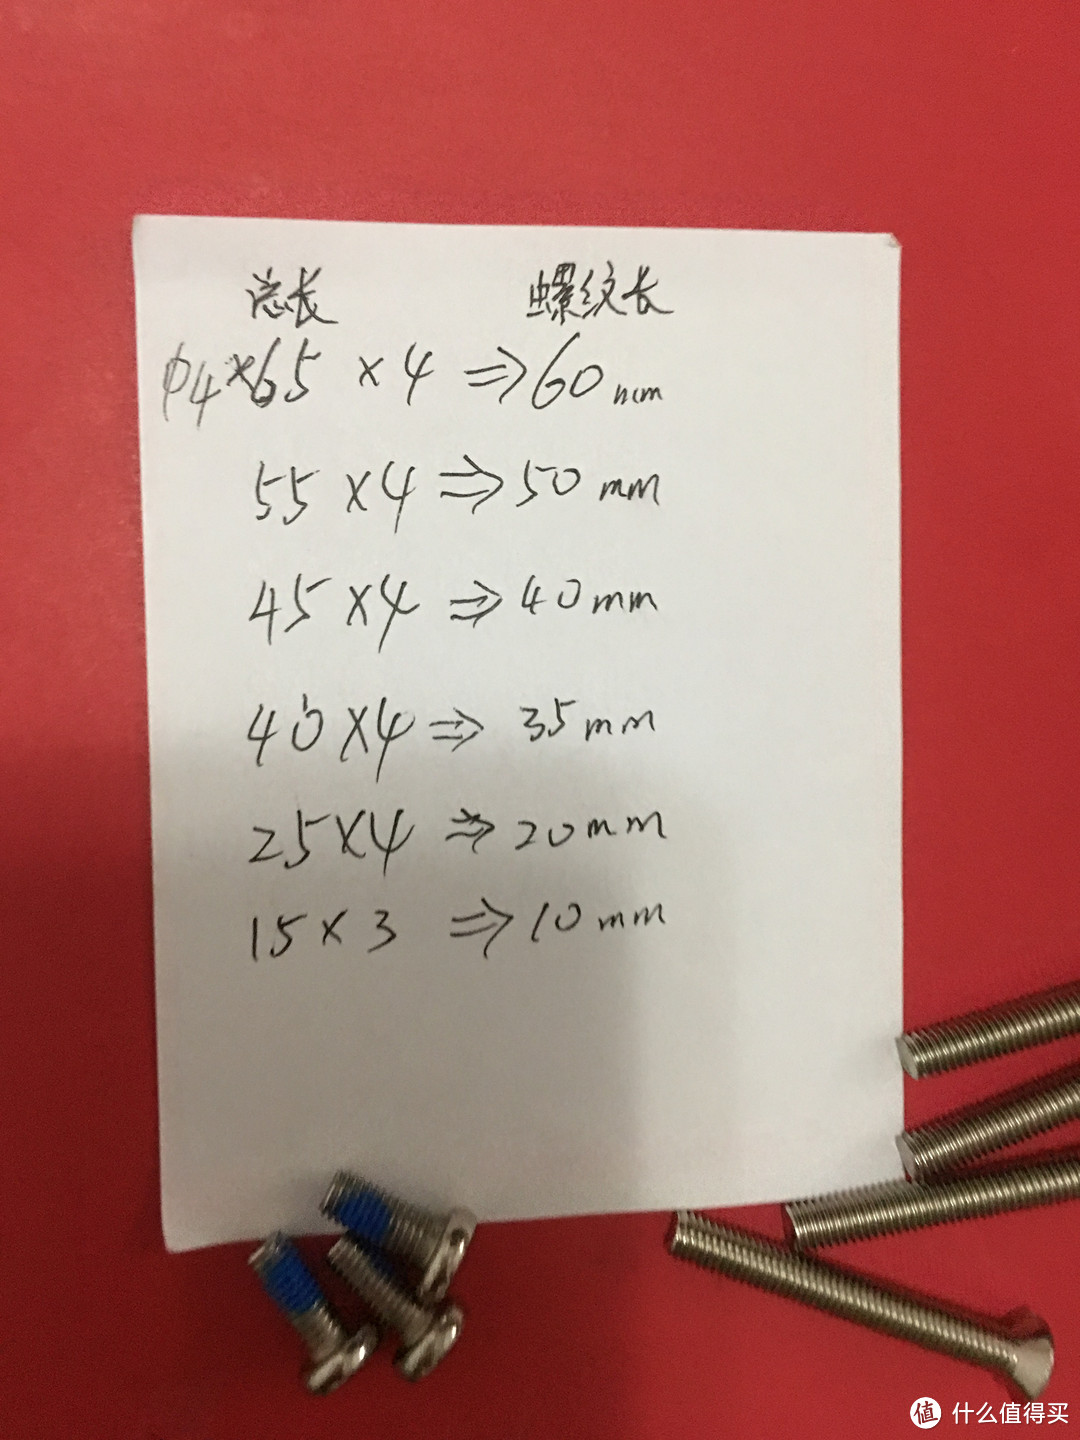 总长 螺纹长
φ4×65 ×4 ⇒60mm
55 ×4 ⇒50mm
45 ×4 ⇒40mm
40×4 ⇒ 35mm
25×4 ⇒ 20mm
15×3 ⇒10mm
值 什么值得买